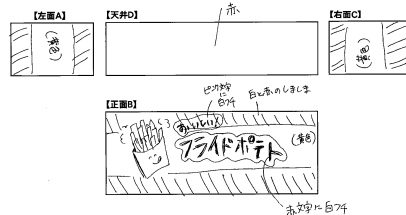 【左面A】
(黄色)
【天井D】
赤
【右面C】
(黄色)
【正面B】
ピンク文字に白フチ
白と赤のしましま
おいしい
フライドポテト
(黄色)
赤文字に白フチ